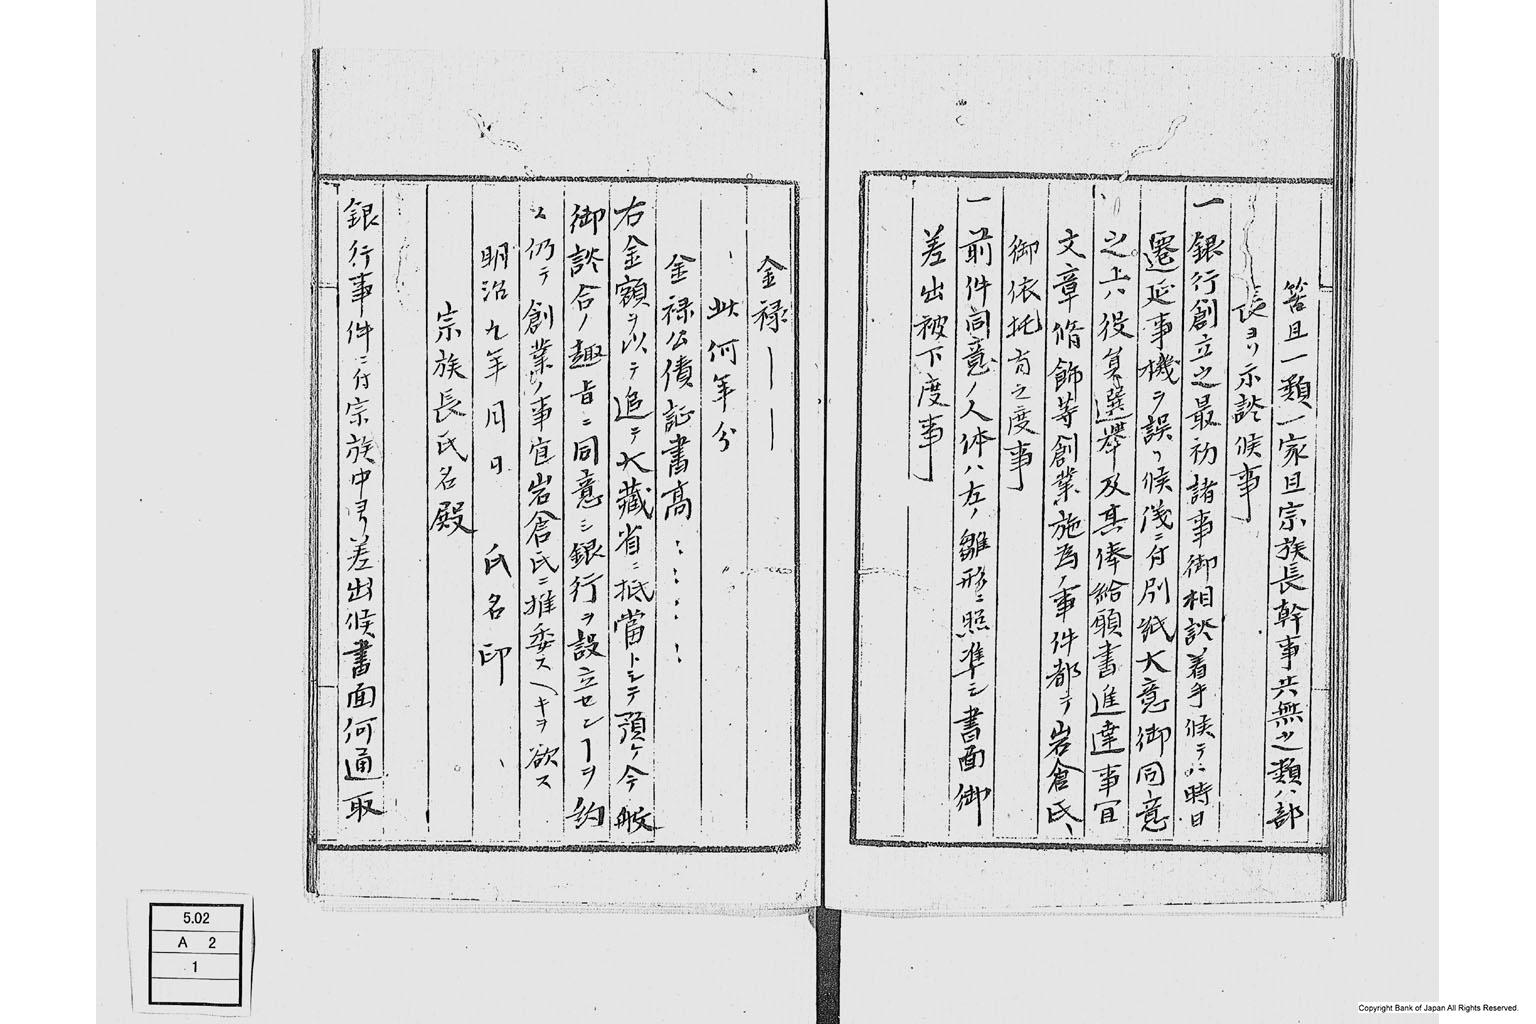 筈且一類一家且宗族長幹事共無之類ハ部
長ヨリ示談候事
一銀行創立之最初諸事御相談着手候テハ時日
遷延事機ヲ誤リ候儀ニ付別紙大意御同意
之上ハ役員選挙及其俸給願書進達事宜
文章脩飾等創業施為ノ事件都テ岩倉氏ヘ
御依托有之度事
一前件同意ノ人体ハ左ノ雛形ニ照準シ書面御
差出被下度事
金禄
此何年分
金禄公債証書高
右金額ヲ以テ追テ大蔵省ニ抵當トシテ預ケ今般
御談合ノ趣旨ニ同意シ銀行ヲ設立センヿヲ約
ス仍テ創業ノ事宜岩倉氏ニ推委スヘキヲ欲ス
明治九年月日 氏名印
宗族長氏名殿
銀行事件ニ付宗族中ヨリ差出候書面何通取
5.02
A 2
1
Copyright Bank of Japan All Rights Reserved.